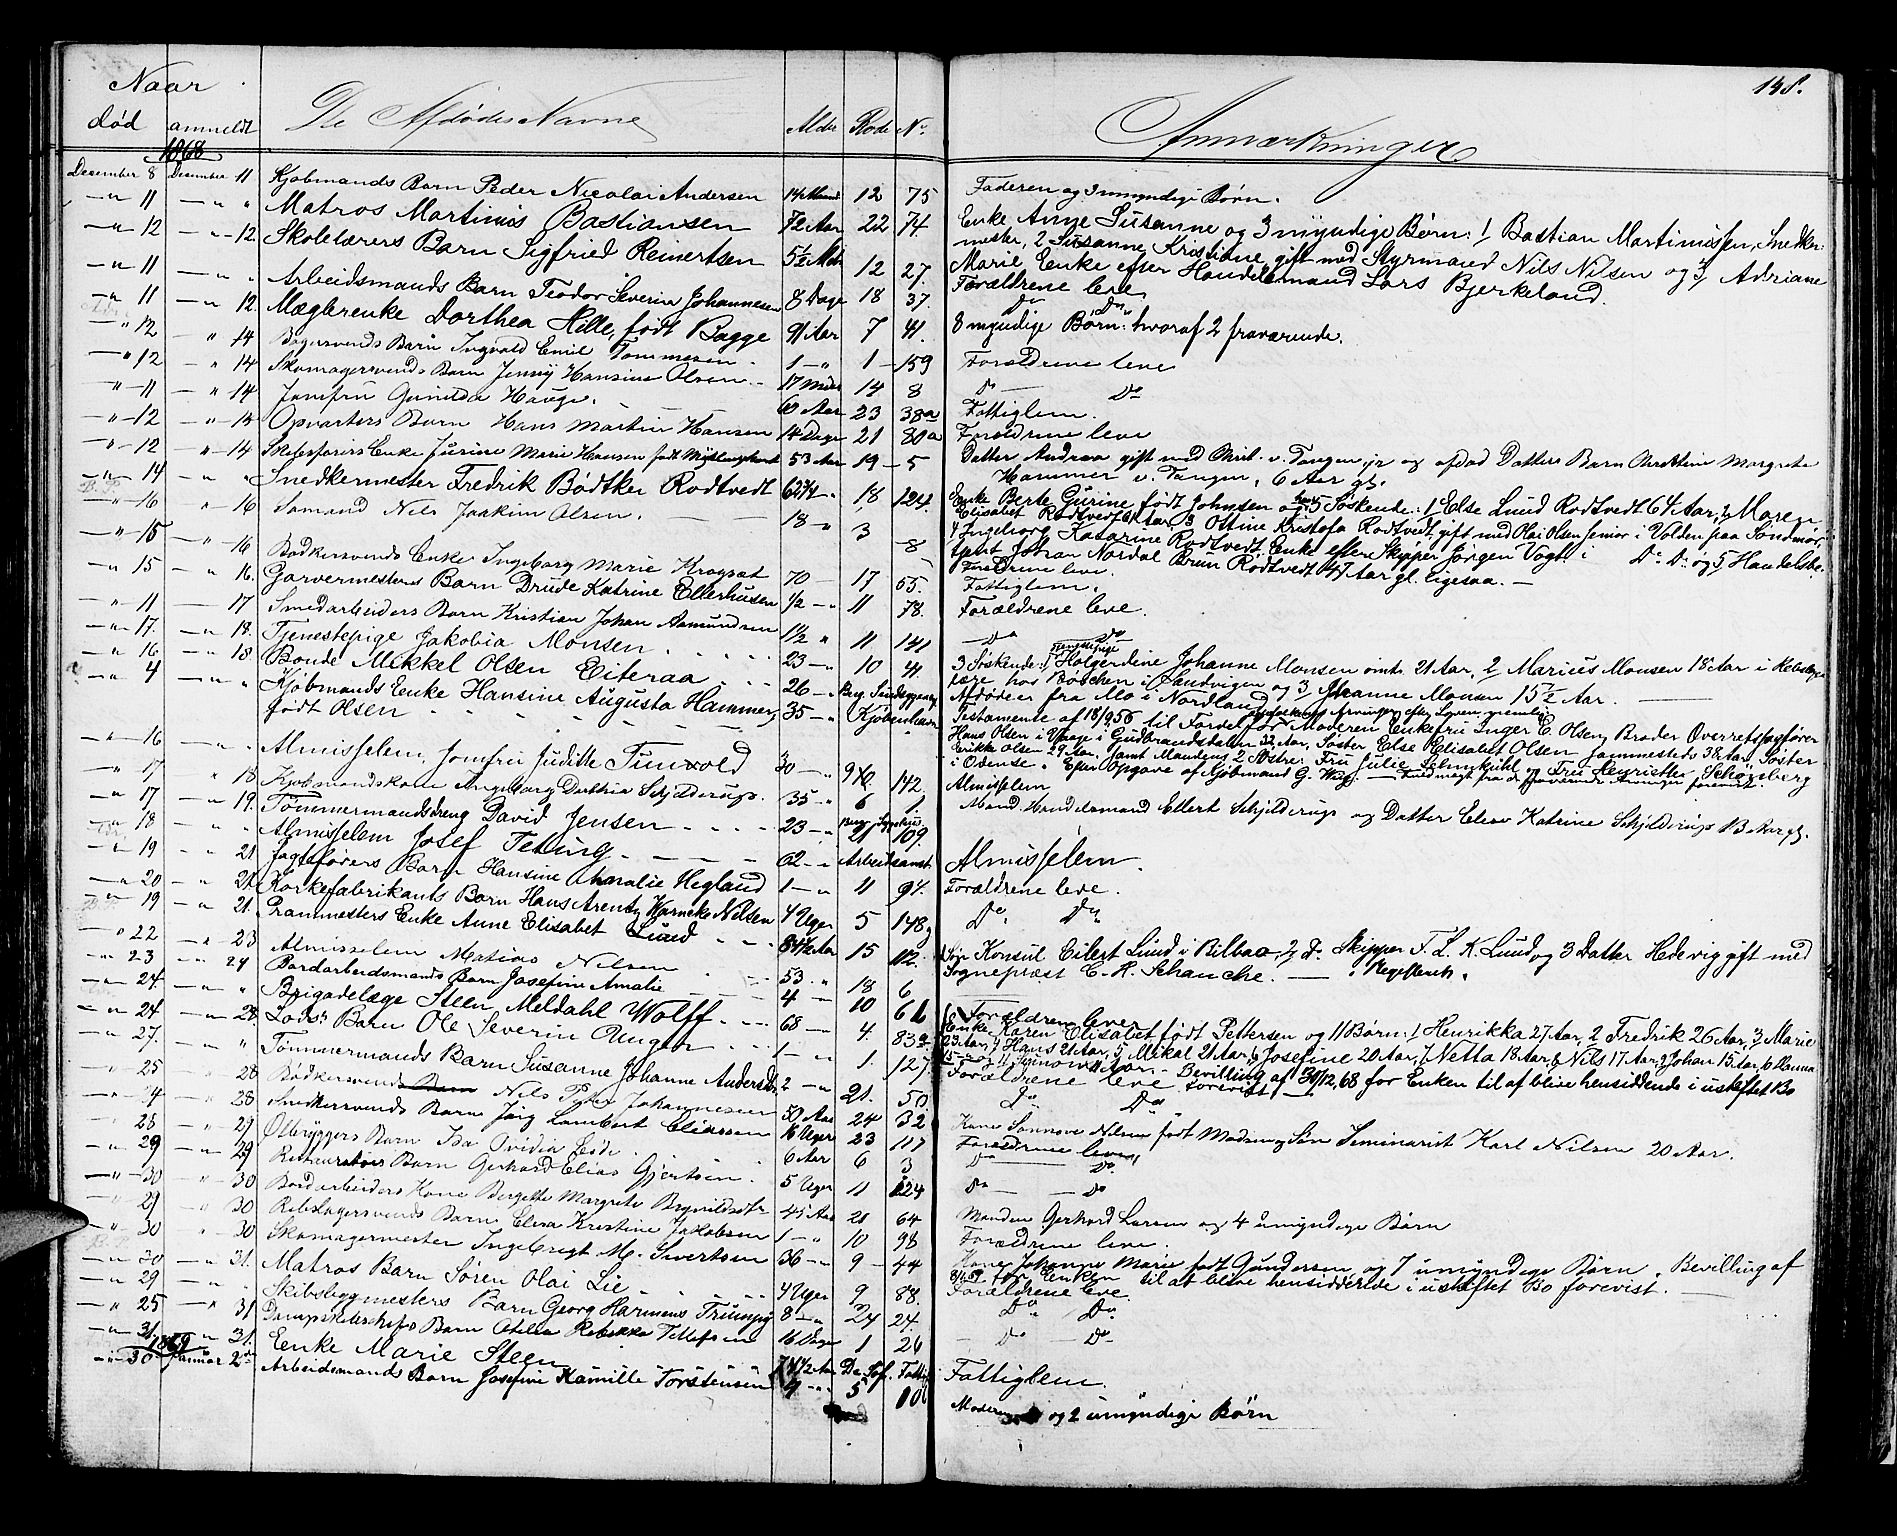 148.
Naar
død anmeldt De Afdødes Navne Alder Rode No Anmærkninger
1868
December 8 December 11 Kjøbmands Barn Peder Nicolai Andersen 14 Maand 12 75 Faderen og 3 umyndige Børn.
—"— 11 —"— " Matros Martinus Bastiansen 72 Aar 22 74 Enke Anne Susanne og 3 myndige Børn: 1/ Bastian Martinussen, Snedker-
mester, 2 Susanne Kristiane gift med Styrmand Nils Nilsen og 3/ Adriane
Marie Enke efter Handelsmand Lars Bjerkeland.
—"— 12 —"— 12. Skolelærers Barn Sigfried Reinertsen 5½ Mdr 12 27. Forældrene leve
—"— 11 —"— " Arbeidsmands Barn Teodor Severin Johannesen 8 Dage 18 37. Do Do
—"— 11 —"— 12. Mæglerenke Dorthea Hille, født Bagge 91 Aar 7 41. 8 myndige Børn: hvoraf 2 fraværende.
—"— 12 " 14 Bagersvends Barn Ingvald Emil Tommesen 1 —"— 1 159 Forældrene leve
—"— 12 —"— 14 Skomagersvends Barn Jenny Hansine Olsen 17 Mdr 14 8 Do — Do
—"— 11 —"— 14 Jomfru Gunilda Hauge. Aar 23 38a Fattiglem.
—"— 12 —"— 14 Opvarters Barn Hans Martin Hansen 14 Dage 21 80a Forældrene leve
—"— 12 —"— 14 Enke Jurine Marie Hansen født 53 Aar 19 5 Datter Andrea gift med Christ. v. Tangen jr og afdød Datters Barn Margrete
Hammer v. Tangen, 6 Aar gl.
—"— 14 " " Snedkermester Fredrik Bødtker Rodtvedt 62¾ —"— 18, 124. Enke Berte Gurine født Johnsen og 5 Søskende: 1 Else Lund Rodtvedt 64 Aar, 2 Maren
Elisabet Rodtvedt Aar, 3 Ottine Kristofa Rodtvedt, gift med Ole Olsen senior i Volden paa Søndmør,
4 Ingeborg Katarine Rodtvedt, Enke efter Skipper Jørgen Vogt i Do Do og 5 Handelsbe-
tjent Johan Nordal Brun Rodtvedt 47 Aar gl. ligesaa. —
—"— 16 " 16 Sømand Nils Joakim Olsen. 18 —"— 3 8 Forældrene leve.
—"— 15 —"— 16 Bødkersvends Enke Ingeborg Marie 70 17 65. Fattiglem.
" 15 " 16. Garvermesters Barn Drude Katrine Ellerhusen ½ —"— 11 78. Forældrene leve.
—"— 11 — 17 Smedarbeiders Barn Kristian Johan Asmundsen 1½ " 11 141 —Do Do
—"— 17. —"— 18. Tjenestepige Jakobia Monsen 23 —"— 10 41 3 Søskende: 1/ Holgerdine Johanne Monsen omtr. 21 Aar, 2 Marius Monsen 18 Aar i
lære hos Bødchen i Sandvigen og 3 Johanne Monsen 15½ Aar.
—"— 16 —"— 18. Bonde Mikkel Olsen Eiteraa 26 —"— Afdøde er fra Mo i Nordland
" 4 —"— " Kjøbmands Enke Hansine Augusta Hammer, 35 —"— Kjøbenhavn Testamente af 18/9 56 til Fordel for Moderen Enkefru Inger E. Olsen, Broder Overretssagfører
født Olsen Hans Olsen i Vaage i Gudbrandsdalen 32 Aar, Søster Else Elisabet Olsen sammesteds 38 Aar, Søster
Olsen 29 Aar, samt Mandens 2 Søstre: Fru Julie og Fru Henriette
i Odense. Efter Opgave af Kjøbmand G.
—"— 16 —"— " Almisselem, Jomfru Juditte Tunvold 30 —"— 142. Almisselem
—"— 17 " 18 Kjøbmandskone Ingeborg Dorthia Schjelderup. 35 —"— 6 1. Mand: Handelsmand Ellert Schjelderup og Datter Elen Katrine Schjelderup Aar gl.
" 17 " 19. Tømmermandsdreng David Jensen 23 —"— 21 109.
—"— 18 —"— " Almisselem Josef Tetling 62 —"— Arbeidsanst Almisselem
—"— 19 " 21 Jagtførers Barn Hansine Amalie Hegland 1 —"— 11 94. Forældrene leve.
—"— 20 —"— 21. Korkefabrikants Barn Hans Arentz Harneke Nilsen 4 Uger 5 148 Do Do
—"— 19 —"— 21. Prammesters Enke Anne Elisabet Lund 84½ Aar 15 112. Konsul Eilert Lund i Bilbao, 2/ Do Skipper F. L. K. Lund og 3 Datter Hedevig gift med
Sogneprest C. R. Schanche.
" 22 —"— 23 Almisselem Matias Nilsen 53. " 18 6
—"— 23 " 24 Bordarbeidsmands Barn Josefine Amalie 4 — 10 61 Forældrene leve.
—"— 24 —"— " Brigadelæge Steen Meldahl Wolff 68 — 4. 832. Enke Karen Elisabet født Pettersen og 11 Børn: 1/ Henrikka 27 Aar, 2 Fredrik 26 Aar, 3 Marie
23 Aar, 4/ Hans 21 Aar, 5 Mikal 21 Aar, 6 Josefine 20 Aar, 7 Netta 18 Aar, 8 Nils 17 Aar, 9 Johan 15 Aar, 10 Hanna
Bevilling af 30/12, 68 for Enken til at blive hensiddende i uskiftet Bo forevist
—"— 24 —"— 28. Lods: Barn Ole Severin Unger 1 —"— 1. 127. Forældrene leve
—"— 27. —"— " Tømmermands Barn Susanne Johanne Anderson 2 —"— 21. 50 Do Do
" 25 " 28 Bødkersvend Nils Peter Johannesen 50 Aar 24 32 Kone Sønnøve Nilsen født Madsen og Søn Seminarist Karl Nilsen 20 Aar.
—"— 24 —"— 28 Snedkersvends Barn Jørg Lambert Eliassen 16 Uger 23 117 Forældrene leve
" 28 —"— 29 Ølbryggers Barn Isa Ovidia Eede 6 Aar 6 3 Do Do
—"— 29 —"— 29 Barn Gerhard Elias Gjertsen. 5 Uger 11 124 Do — Do
—"— 30 —"— 30 Bordarbeiders Kone Bergitte Margrete Brynildsdtr 45 Aar 21 64 Manden Gerhard Larsen og 4 umyndige Børn
" 29 " 30 Rebslagersvends Barn Elisa Kristine Jakobsen 1 —"— 10 98 Forældrene leve.
—"— 30 " 30 Skomagermester Ingebrigt M. Sivertsen 36 —"— 9 44 Kone Johanne Marie født Gundersen og 7 umyndige Børn. Bevilling af
for Enken til at blive hensiddende i uskiftet Bo forevist.
—"— 30 —"— 31. Matros Barn Søren Olai Lie 4 Uger 9 88. Forældrene leve.
—"— 29 —"— " Skibsbygmesters Barn Georg Harmens Trumpy 8 —"— 24 24. Do Do
—"— 25 —"— 31 Barn Otelia Rebekka Tellefsen 16 Dage 1 26 — Do — Do
—"— 31 —"— 31. Enke Marie Steen 74½ Aar Fattiglem.
1869
—"— 30 Januar 2den Arbeidsmands Barn Josefine Kamille Torstensen 4 —"— 5 100 Moderen og 2 umyndige Børn